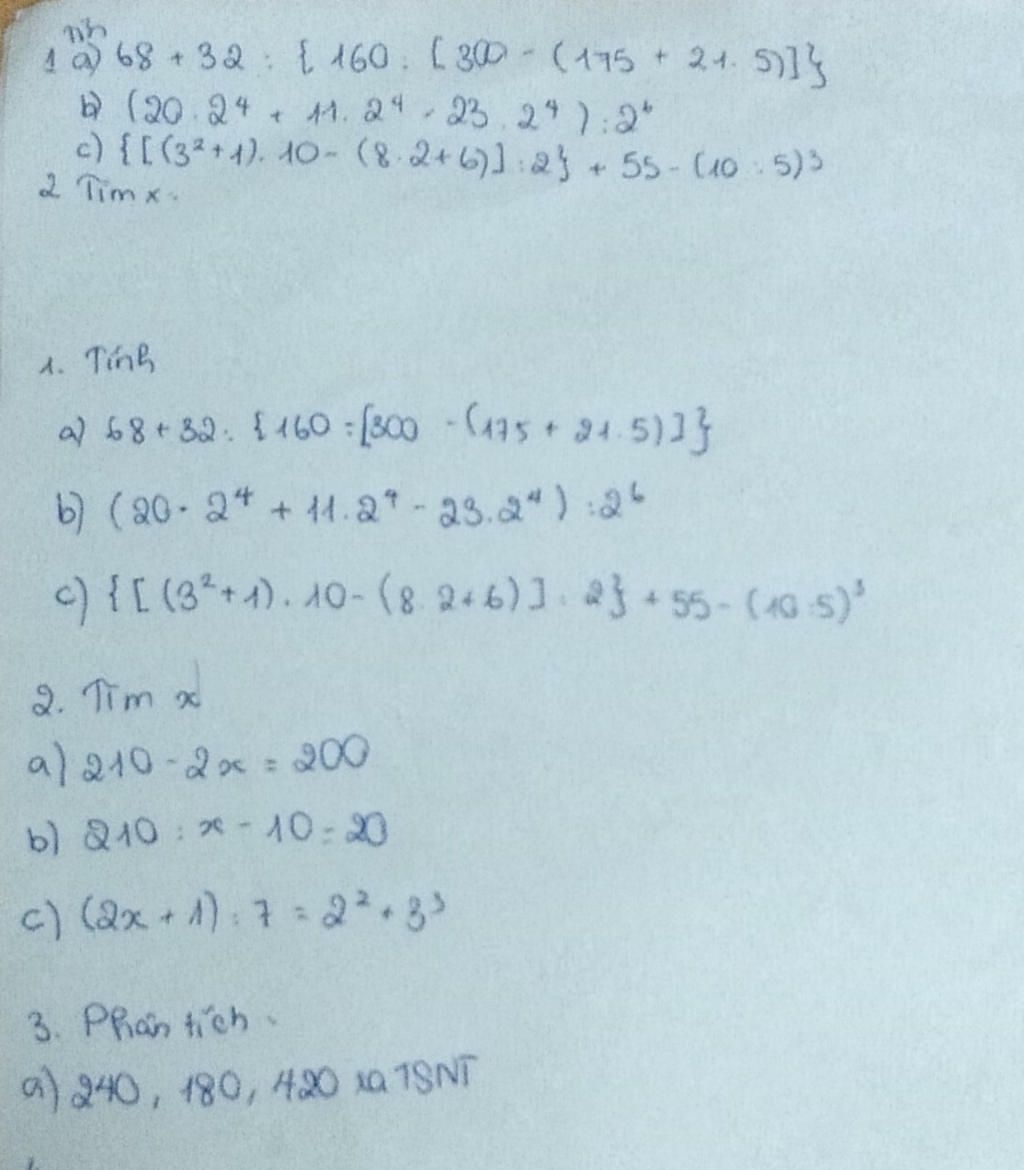 1 a) 68 + 32 : { 160 : [ 300 - ( 175 + 21. 5)]}
b) (20. 2⁴ + 11. 2⁴ - 23. 2⁴ ) : 2⁶
c) {[(3²+1). 10 - (8. 2+6)] : 2} + 55 - (10 : 5)³
2 Tìm x.
1. Tính
a) 68 + 32 : { 160 : [300 - (175 + 21. 5)]}
b) (20. 2⁴ + 11. 2⁴ - 23. 2⁴) : 2⁶
c) {[(3²+1). 10 - (8. 2+6)] : 2} + 55 - (10 : 5)³
2. Tìm x
a) 210 - 2x = 200
b) 210 : x - 10 = 20
c) (2x + 1) : 7 = 2² + 3³
3. Phân tích
a) 240, 180, 420 ra TSNT